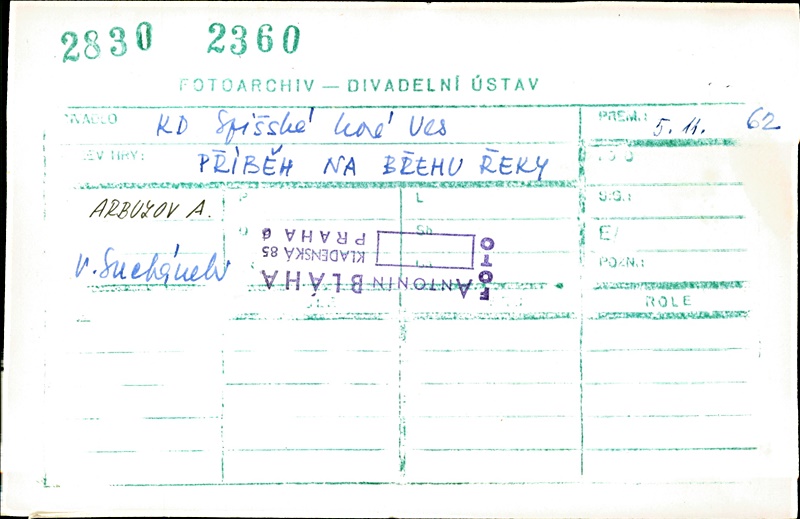 2830 2360
FOTOARCHIV — DIVADELNÍ ÚSTAV
KD Spišské Nové Ves
PREM.: 5. 11. 62
EV HRY: PŘÍBĚH NA BŘEHU ŘEKY
ARBUZOV A.
P
L
S.G.:
O
Sb
E/
V. Suchánek
POZN.:
ROLE
FOTO
ANTONIN BLÁHA
KLADENSKÁ 85
PRAHA